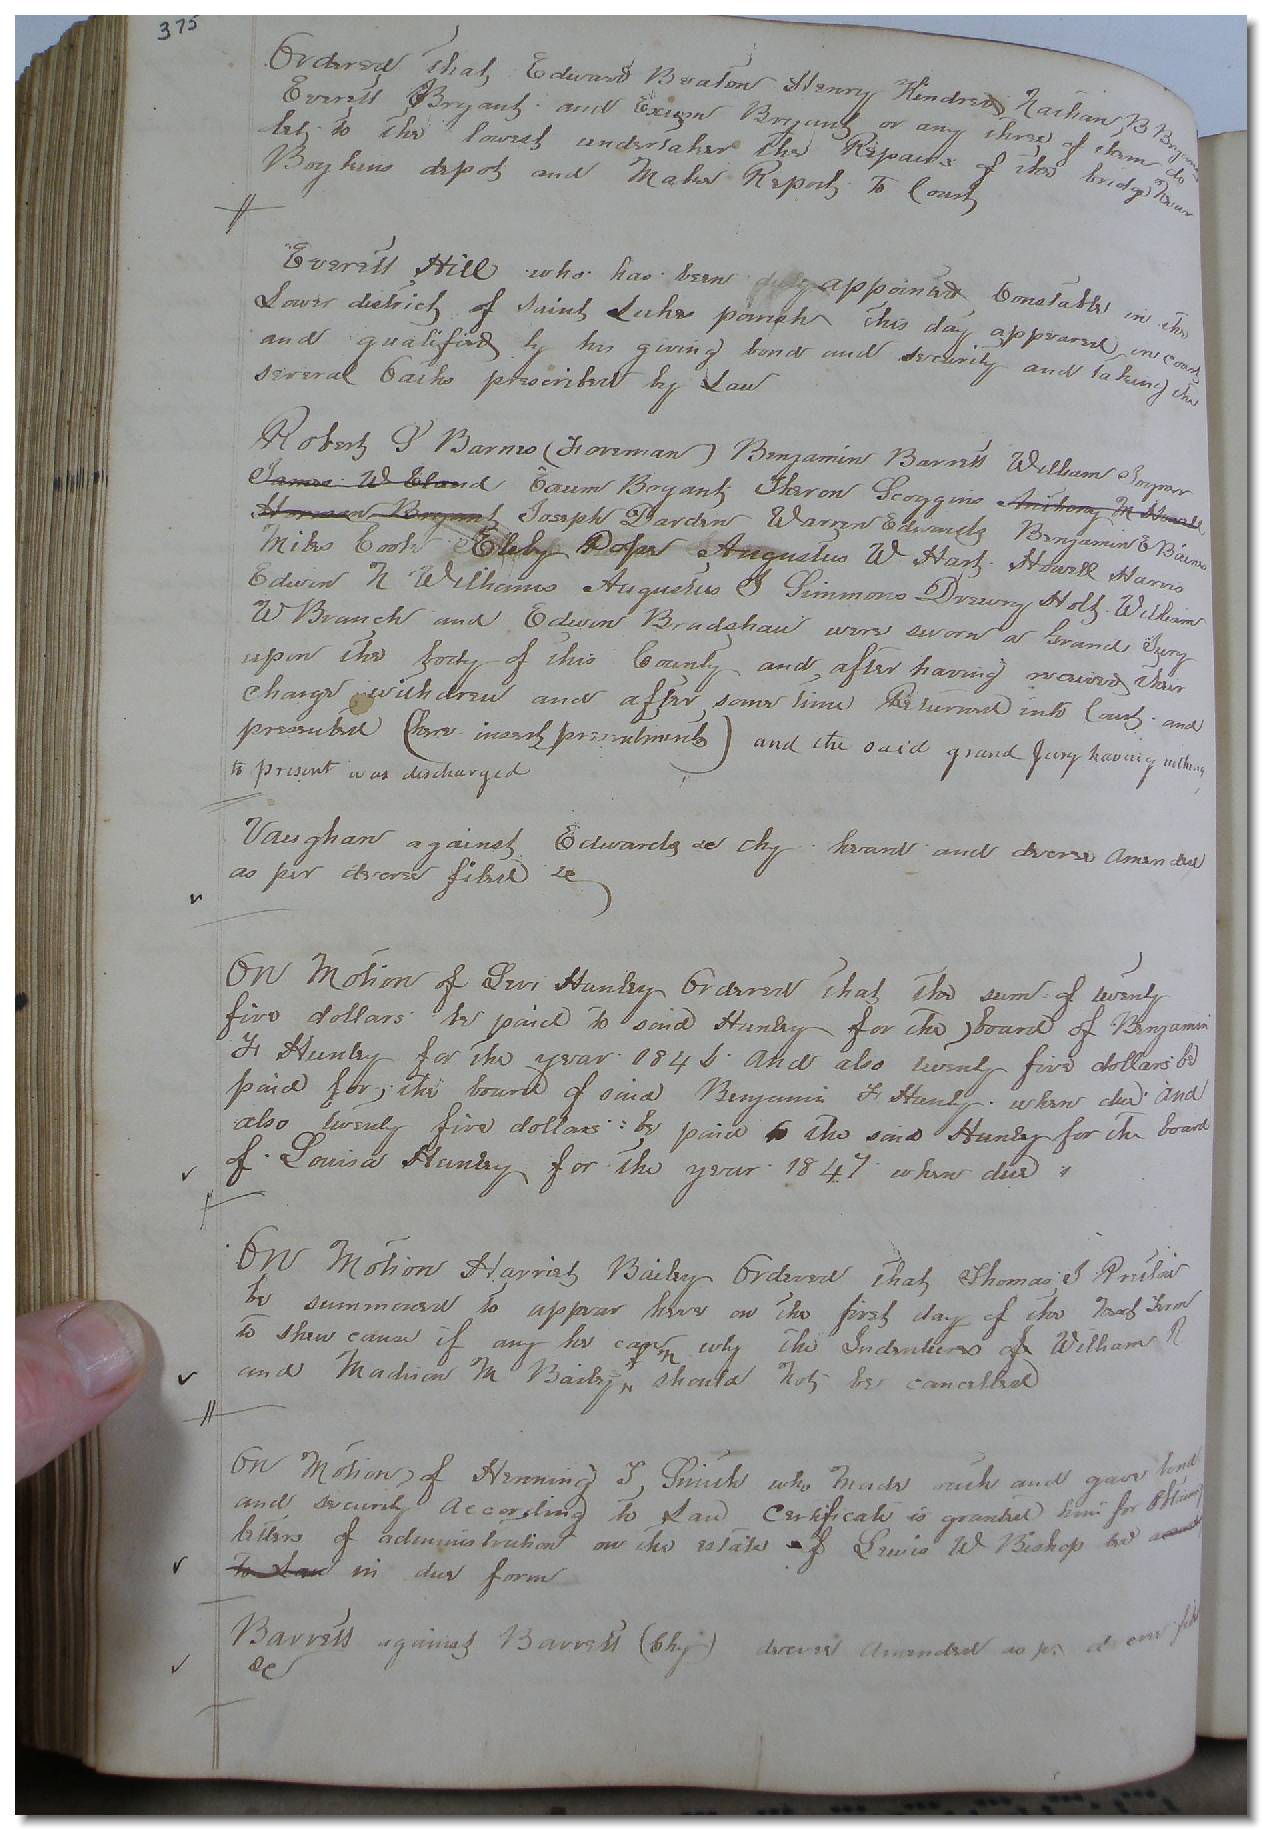 375
Ordered that Edward Beaton Henry Kindred Nathan B Bryant
Everett Bryant and Exum Bryant or any three of them do
let to the lowest undertaker the Repairs of the bridge Near
Boykins depot and Make Report to Court
Everett Hill who has been duly appointed Constable in the
Lower district of Saint Lukes parish this day appeared in court
and qualified by his giving bond and security and taking the
several Oaths prescribed by Law
Robert S Barnes (Foreman) Benjamin Barrett William Joyner
James W Eland Exum Bryant Theron Scoggins Anthony M Howell
Harman Bryant Joseph Darden Warren Edwards Benjamin E Barnes
Miles Cook Elely Pope Augustus W Hart Howell Harris
Edwin N Williams Augustus J Simmons Drewry Holt William
W Branch and Edwin Bradshaw were sworn a Grand Jury
upon the body of this County and after having received their
charge withdrew and after some time Returned into Court and
presented (here insert presentments) and the said grand Jury having nothing
to present was discharged
Vaughan against Edwards &c chy heard and decree Amended
as per decree filed &c
On Motion of Levi Hunley Ordered that the sum of twenty
five dollars be paid to said Hunley for the board of Benjamin
F Hunley for the year 1846 And also twenty five dollars be
paid for the board of said Benjamin F Hunly when due And
also twenty five dollars be paid to the said Hunley for the board
of Louisa Hunley for the year 1847 when due
On Motion Harriet Bailey Ordered that Thomas J
be summoned to appear here on the first day of the Next Term
to shew cause if any he can why the Indentures of William R
and Madison M Bailey should Not be cancelled
On Motion of Henning T Smith who Made oath and gave bond
and security According to Law Certificate is granted him for Obtaining
letters of administration on the estate of Lewis W Bishop
to Law in due form
Barrett against Barrett (Chy) decree Amended as per decree filed
&c